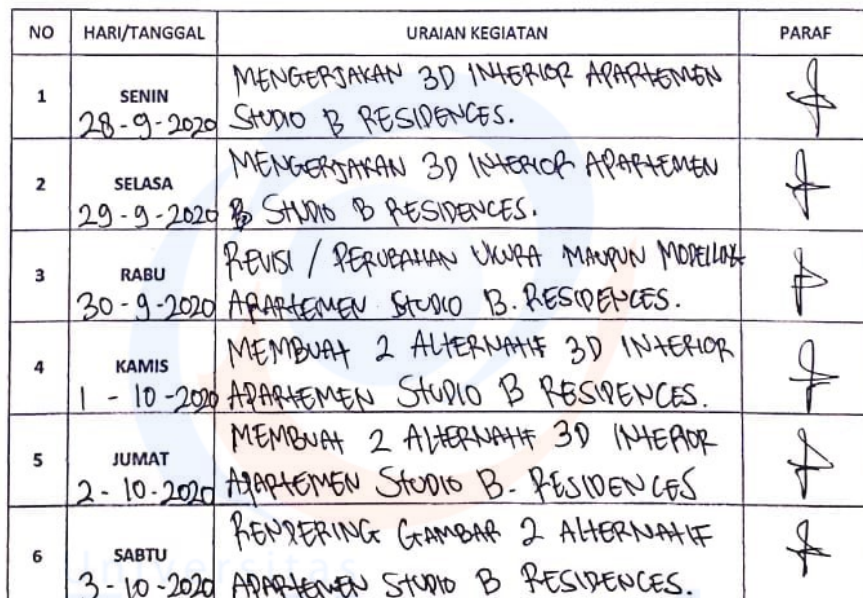 NO HARI/TANGGAL URAIAN KEGIATAN PARAF
1 SENIN 28-9-2020 MENGERJAKAN 3D INTERIOR APARTEMEN
STUDIO B RESIDENCES.
2 SELASA 29-9-2020 MENGERJAKAN 3D INTERIOR APARTEMEN
STUDIO B RESIDENCES.
3 RABU 30-9-2020 REVISI / PERUBAHAN UKURA MAUPUN MODELLING
APARTEMEN STUDIO B. RESIDENCES.
4 KAMIS 1-10-2020 MEMBUAT 2 ALTERNATIF 3D INTERIOR
APARTEMEN STUDIO B RESIDENCES.
5 JUMAT 2-10-2020 MEMBUAT 2 ALTERNATIF 3D INTERIOR
APARTEMEN STUDIO B. RESIDENCES
6 SABTU 3-10-2020 RENDERING GAMBAR 2 ALTERNATIF
APARTEMEN STUDIO B RESIDENCES.
Universitas